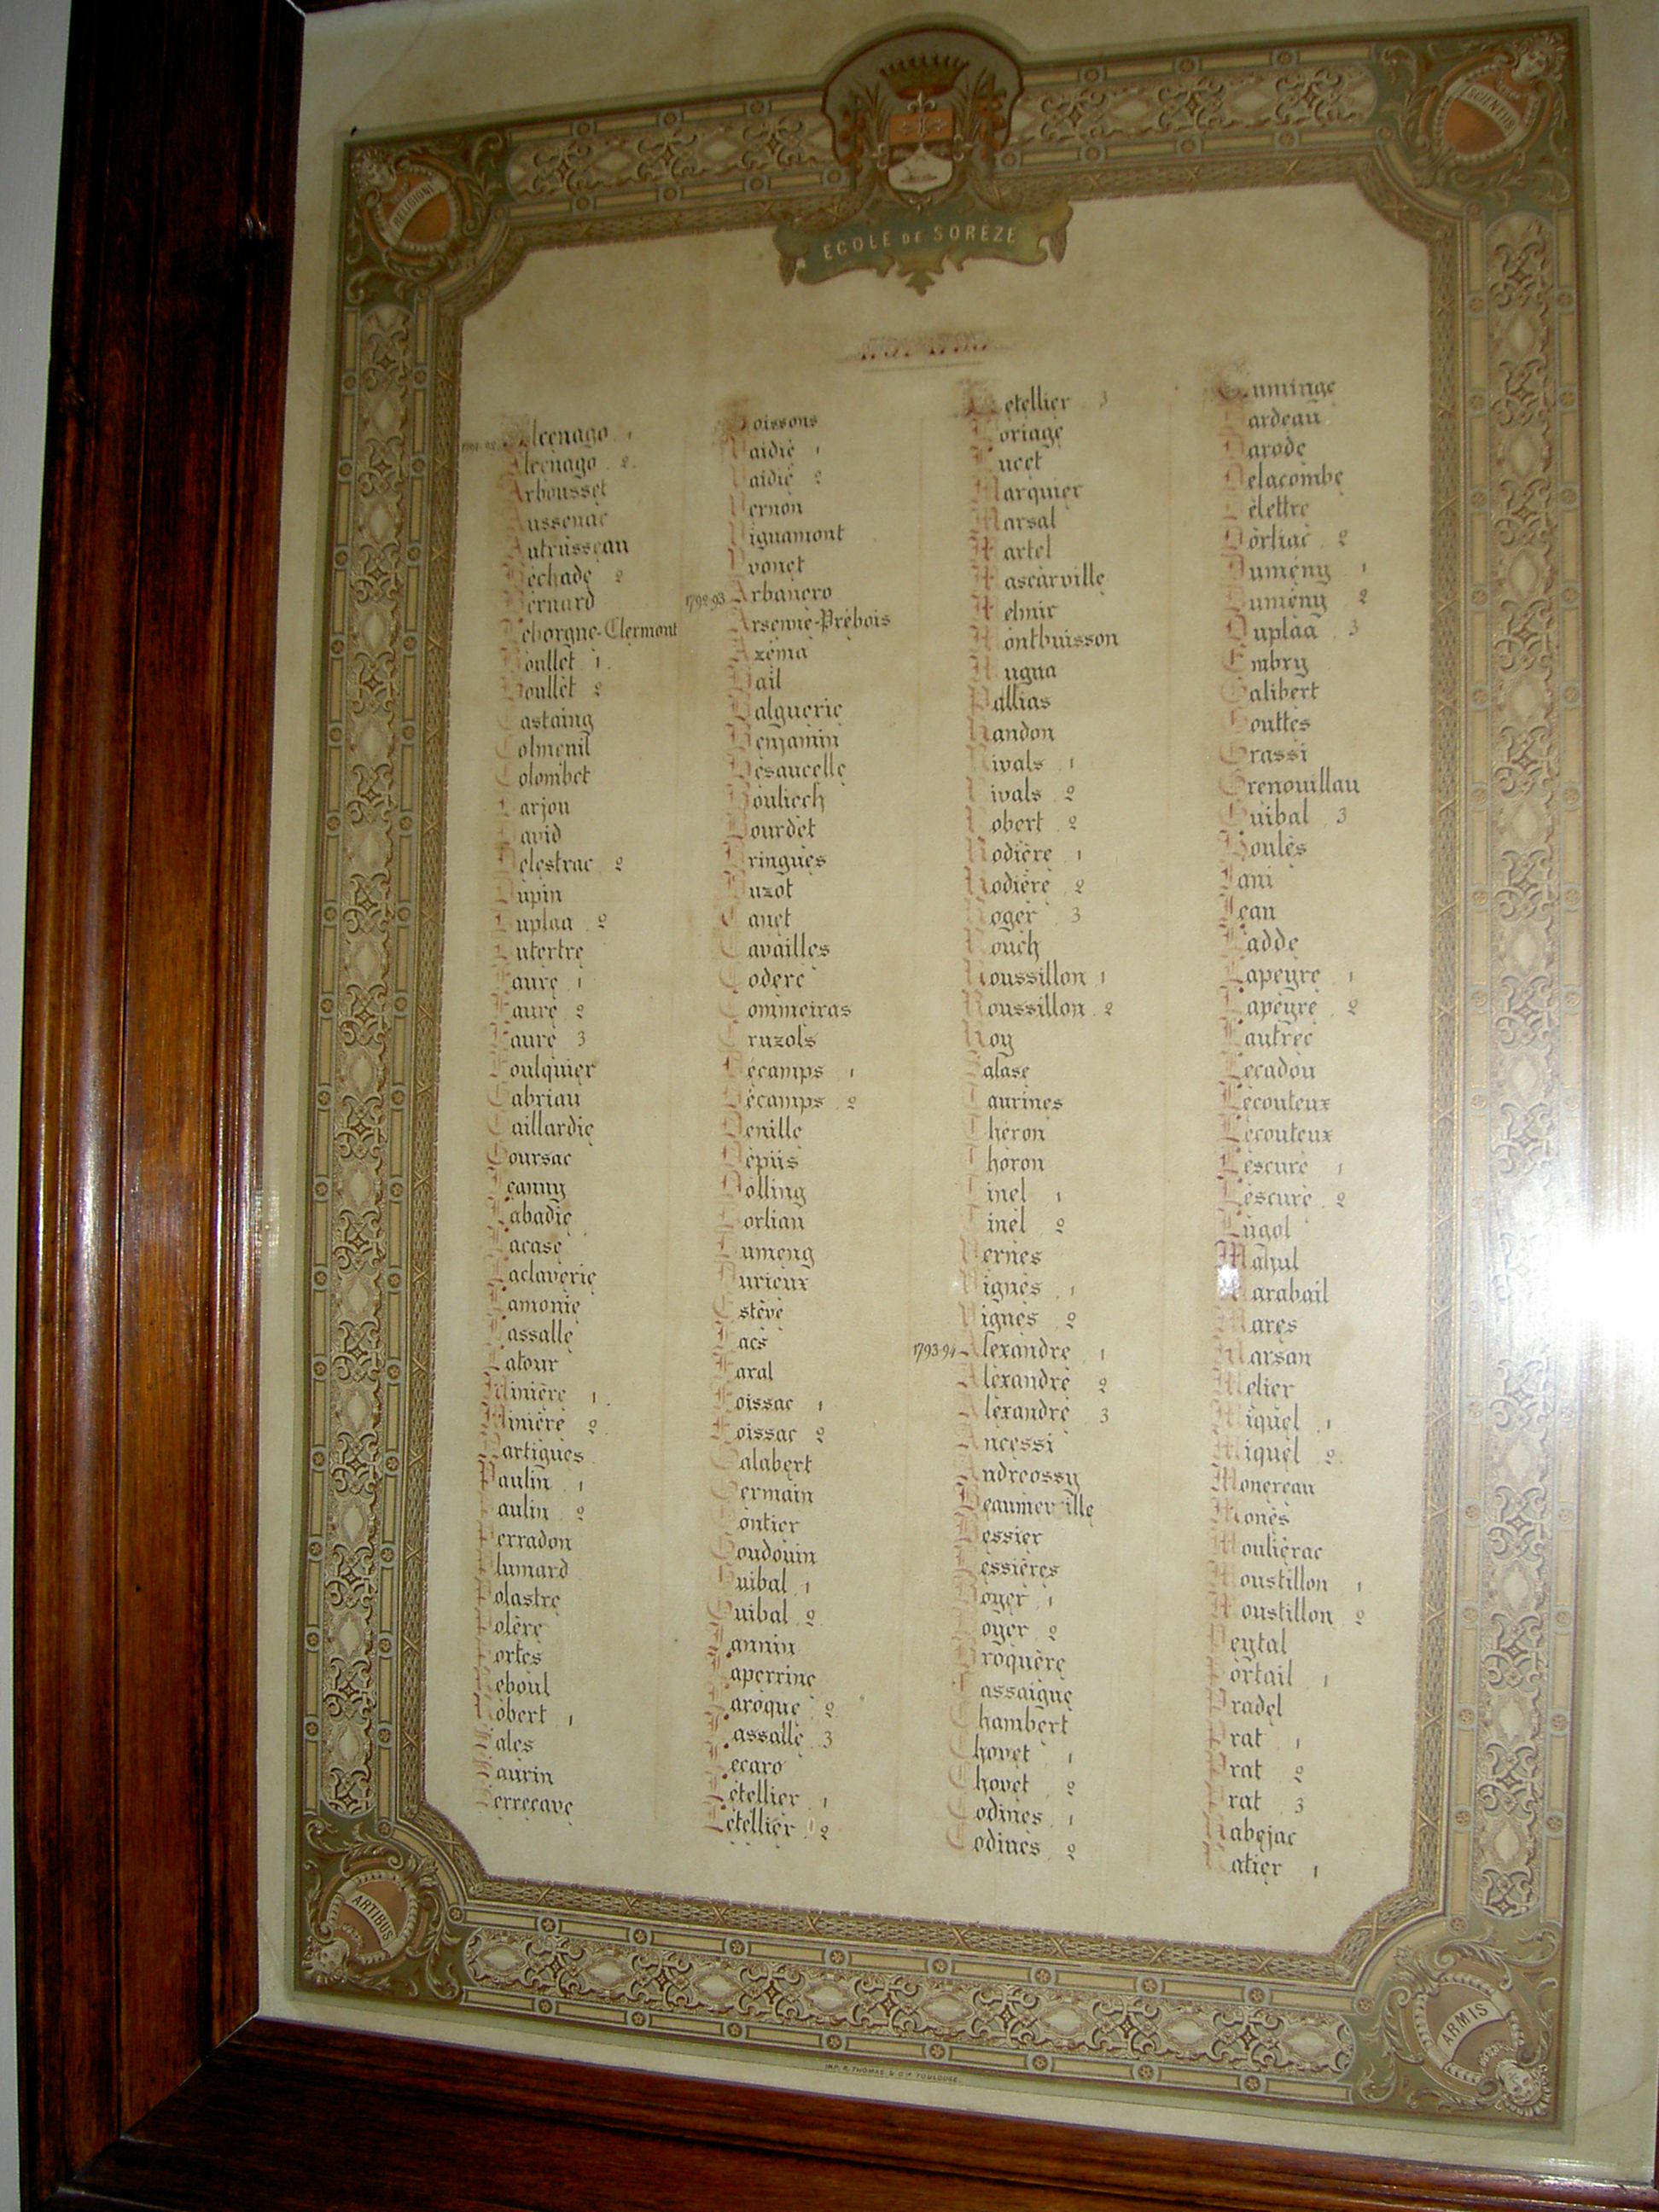 RELIGIONI
SCIENTIIS
ÉCOLE DE SORÈZE
Alcenago 1
Alcenago 2
Arbousset
Aussenac
Autrusseau
Béchade 2
Bernard
Leborgne-Clermont
Boullet 1
Boullet 2
Castaing
Colmenil
Colombet
Darjou
David
Delestrac 2
Dupin
Duplaa 2
Dutertre
Faure 1
Faure 2
Faure 3
Foulquier
Gabriau
Gaillardie
Goursac
Jeanny
Labadie
Lacase
Laclaverie
Lamonie
Lassalle
Latour
Minière 1
Minière 2
Partigues
Paulin 1
Paulin 2
Perradon
Plumard
Polastre
Polère
Portes
Reboul
Robert 1
Sales
Saurin
Serrecave
Soissons
Vaidié 1
Vaidié 2
Vernon
Vignamont
Yvonet
1792-93 Arbanero
Arsenne-Prébois
Azéma
Bail
Balguerie
Benjamin
Bésaucelle
Bouliech
Bourdet
Bringues
Buzot
Canet
Cavailles
Codere
Commeiras
Cruzols
Décamps 1
Décamps 2
Denille
Dépiis
Dolling
Dorlian
Dumeng
Durieux
Estève
Facs
Faral
Foissac 1
Foissac 2
Galabert
Germain
Gontier
Goudouin
Guibal 1
Guibal 2
Jannin
Laperrine
Laroque 2
Lassalle 3
Lecaro
Letellier 1
Letellier 2
Letellier 3
Loriage
Lucet
Marquier
Marsal
Martel
Mascarville
Melnir
Montbuisson
Mugna
Pallias
Randon
Rivals 1
Rivals 2
Robert 2
Rodière 1
Rodière 2
Roger 3
Rouch
Roussillon 1
Roussillon 2
Roy
Salase
Taurines
Théron
Thoron
Tinel 1
Tinel 2
Vernes
Vignes 1
Vignes 2
1793-94 Alexandre 1
Alexandre 2
Alexandre 3
Ancessi
Andreossy
Beaumerville
Bessier
Bessières
Boyer 1
Boyer 2
Broquère
Cassaigne
Chambert
Chovet 1
Chovet 2
Codines 1
Codines 2
Cuminge
Dardeau
Darode
Delacombe
Delettre
Dorliac 2
Dumény 1
Dumény 2
Duplaa 3
Embry
Galibert
Gouttes
Grassi
Grenouillau
Guibal 3
Houlès
Jani
Jean
Ladde
Lapeyre 1
Lapeyre 2
Lautrec
Lecadou
Lecouteux
Lecouteux
Lescure 1
Lescure 2
Lugol
Mahul
Marabail
Mares
Marsan
Melier
Miquel 1
Miquel 2
Monereau
Monès
Moulierac
Moustillon 1
Moustillon 2
Peytal
Portail 1
Pradel
Prat 1
Prat 2
Prat 3
Rabejac
Ratier 1
ARTIBUS
ARMIS
IMP. R. THOMAS & Cie TOULOUSE